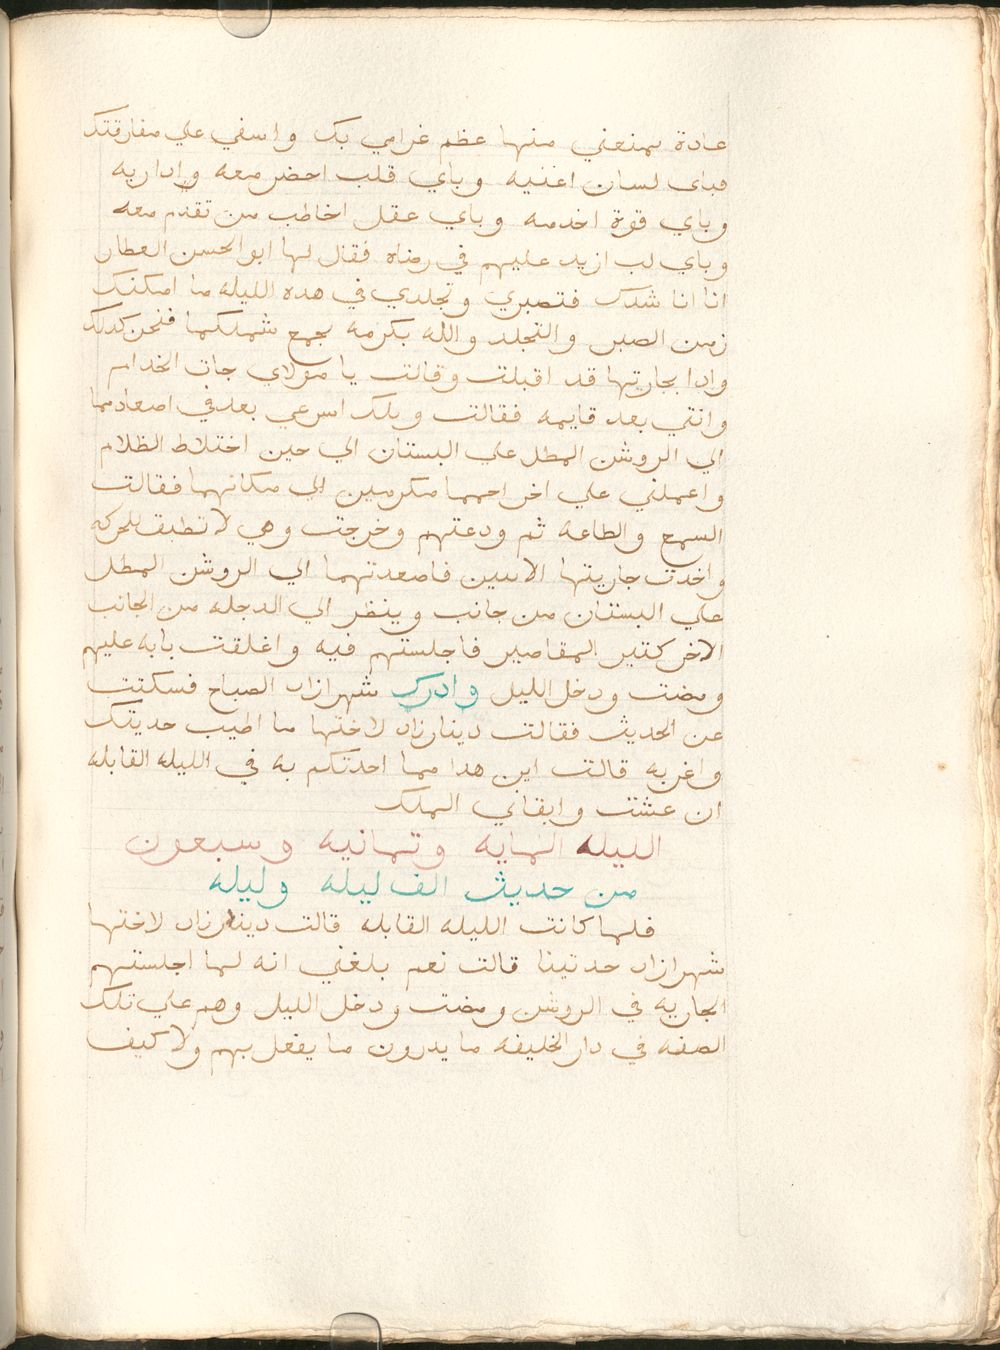 عادة يمنعني منها عظم غرامي بك واسفي علي مفارقتك
فباى لسان اغنيه وباي قلب احضر معه واداريه
وباي قوة اخدمه وباي عقل اخاطب من تقدم معه
وباي لب ازيد عليهم في رضاه فقال لها ابو الحسن العطان
انا انا شدك فتصبري وتجلدي في هده الليله ما امكنك
زمن الصبر والتجلد والله بكرمه يجمع شملكما فنحن كدلك
وادا بجاريتها قد اقبلت وقالت يا مولاي جات الخدام
وانتي بعد قايمه فقالت ويلك اسرعي بعد في اصعادهما
الي الروشن المطل علي البستان الي حين اختلاط الظلام
واعملني علي اخراجهما مكرمين الي مكانهما فقالت
السمع والطاعه ثم ودعتهم وخرجت وهي لا تطيق للحركه
واخدت جاريتها الاتنين فاصعدتهما الي الروشن المطل
علي البستان من جانب وينظر الي الدجله من الجانب
الاخر كتير المقاصير فاجلستهم فيه واغلقت بابه عليهم
ومضت ودخل الليل وادرك شهرازاد الصباح فسكتت
عن الحديث فقالت دينارزاد لاختها ما اطيب حديتك
واغربه قالت اين هدا مما احدتكم به في الليله القابله
ان عشت وابقاني الملك
الليله المايه وتمانيه وسبعون
من حديث الف ليله وليله
فلما كانت الليله القابله قالت دينارزاد لاختها
شهرازاد حدتينا قالت نعم بلغني انه لما اجلستهم
الجاريه في الروشن ومضت ودخل الليل وهم علي تلك
الصفه في دار الخليفه ما يدرون ما يفعل بهم ولا كيف